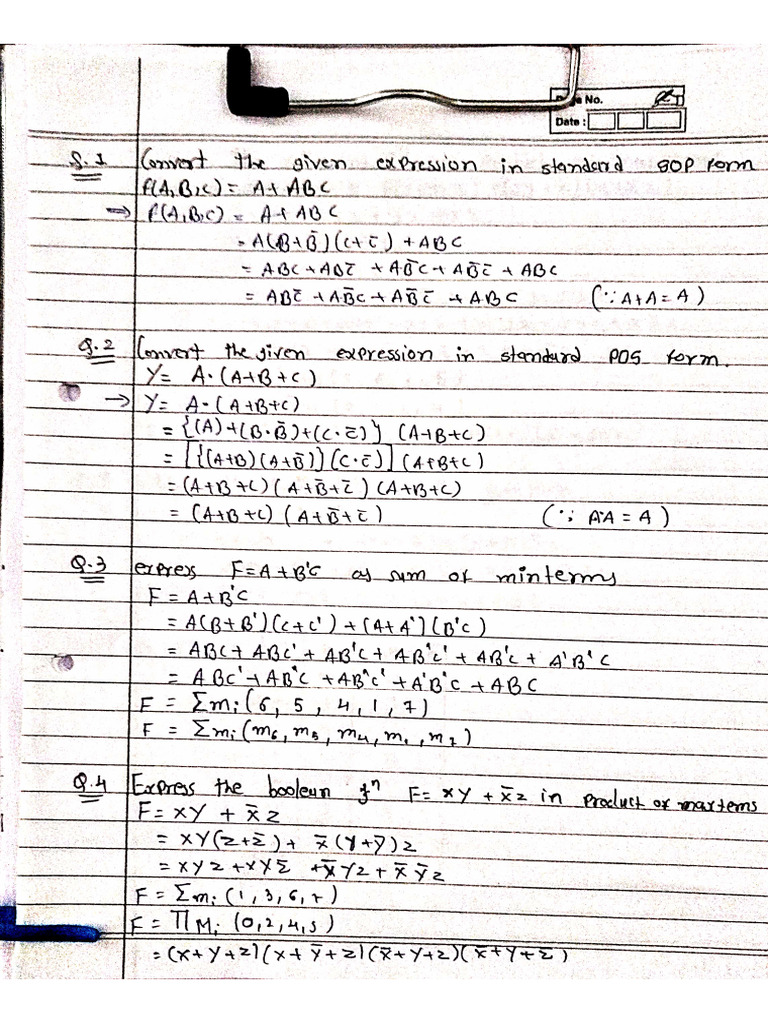 Page No.
Date :
Q.1 Convert the given expression in standard SOP form
f(A,B,C) = A+ ABC
⇒ f(A,B,C) = A+ ABC
= A(B+B̄)(C+C̄) + ABC
= ABC + ABC̄ + AB̄C + AB̄C̄ + ABC
= ABC̄ + AB̄C + AB̄C̄ + ABC (∵ A+A = A)
Q.2 Convert the given expression in standard POS form.
Y= A·(A+B+C)
→ Y= A·(A+B+C)
= {(A)+(B·B̄)+(C·C̄)} (A+B+C)
= [{(A+B)(A+B̄)}(C·C̄)](A+B+C)
= (A+B+C)(A+B̄+C̄)(A+B+C)
= (A+B+C)(A+B̄+C̄) (∵ A·A = A)
Q.3 express F=A+B'C as sum of minterms
F = A+B'C
= A(B+B')(C+C') + (A+A')(B'C)
= ABC+ ABC' + AB'C + AB'C' + AB'C + A'B'C
= ABC' + AB'C + AB'C' + A'B'C + ABC
F = Σmi(6, 5, 4, 1, 7)
F = Σmi(m6, m5, m4, m1, m7)
Q.4 Express the boolean fn F= xY + x̄z in product of maxtems
F= xY + x̄z
= xY(z+z̄) + x̄(Y+Ȳ)z
= xYz + xYz̄ + x̄Yz + x̄Ȳz
F = Σmi (1,3,6,7)
F = ΠMi (0,2,4,5)
= (x+Y+z)(x+Ȳ+z)(x̄+Y+z)(x̄+Y+z̄)